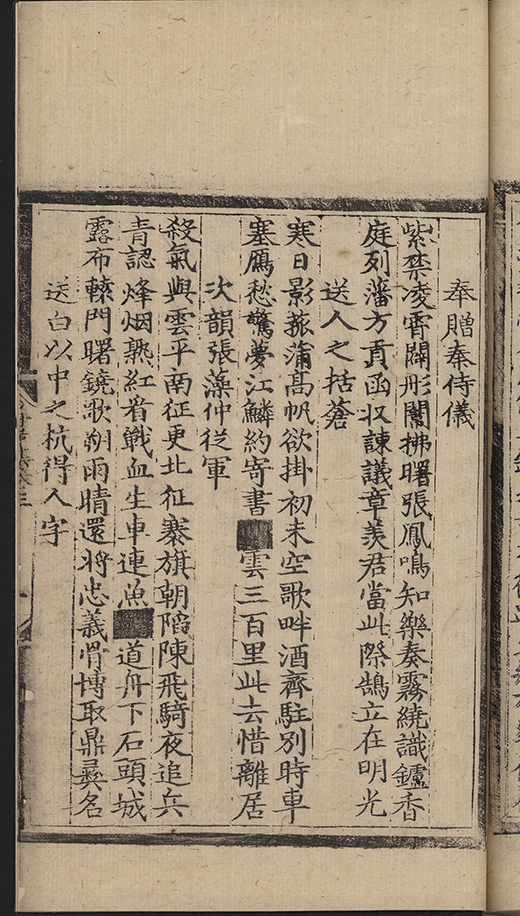 奉贈奉侍儀
紫禁凌霄闢彤闈拂曙張鳳鳴知樂奏霧繞識鑪香
庭列藩方貢函収諫議章羨君當此際鵠立在明光
送人之括蒼
寒日影菰蒲高帆欲掛初未空歌畔酒齊駐別時車
塞鴈愁驚夢江鱗約寄書雲三百里此去惜離居
次韻張藻仲從軍
殺氣與雲平南征更北征寨旗朝陷陳飛騎夜追兵
青認烽烟熟紅看戰血生車連魚道舟下石頭城
露布轅門曙鐃歌朔雨晴還將忠義骨博取鼎彝名
送白以中之杭得人字